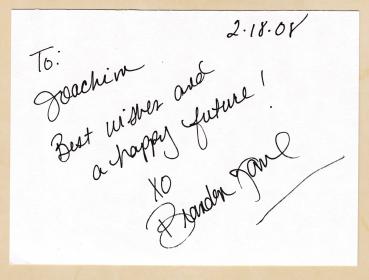 2.18.08
To:
Joachim
Best wishes and
a happy future!
XO